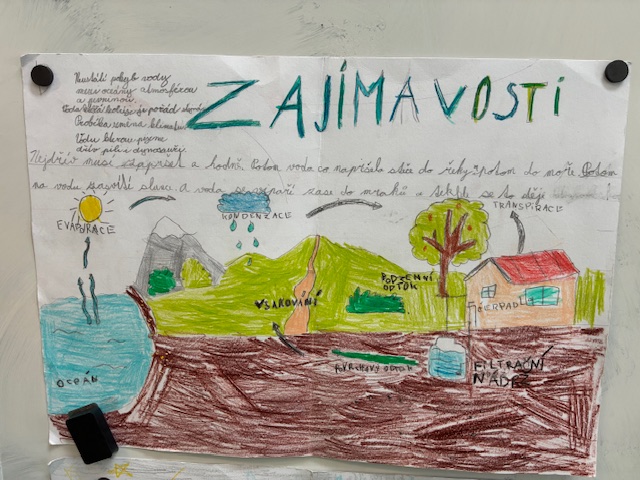 Neustálý pohyb vody
mezi oceány atmosférou
a pevninou.
Voda která koluje je pořád stará
Probíhá změna klimatu
Vodu kterou pijeme
dříve pili i dynosauři.
ZAJÍMAVOSTI
Nejdřív musí zapršet a hodně. Potom voda co napršela steče do řeky potom do moře Potom
na vodu zasvítí slunce a voda se vypaří zase do mraků a takhle se to děje
EVAPORACE
KONDENZACE
TRANSPIRACE
PODZEMNÍ
ODTOK
VSAKOVÁNÍ
ČERPADLO
POVRCHOVÝ ODTOK
FILTRAČNÍ
NÁDRŽ
OCEÁN